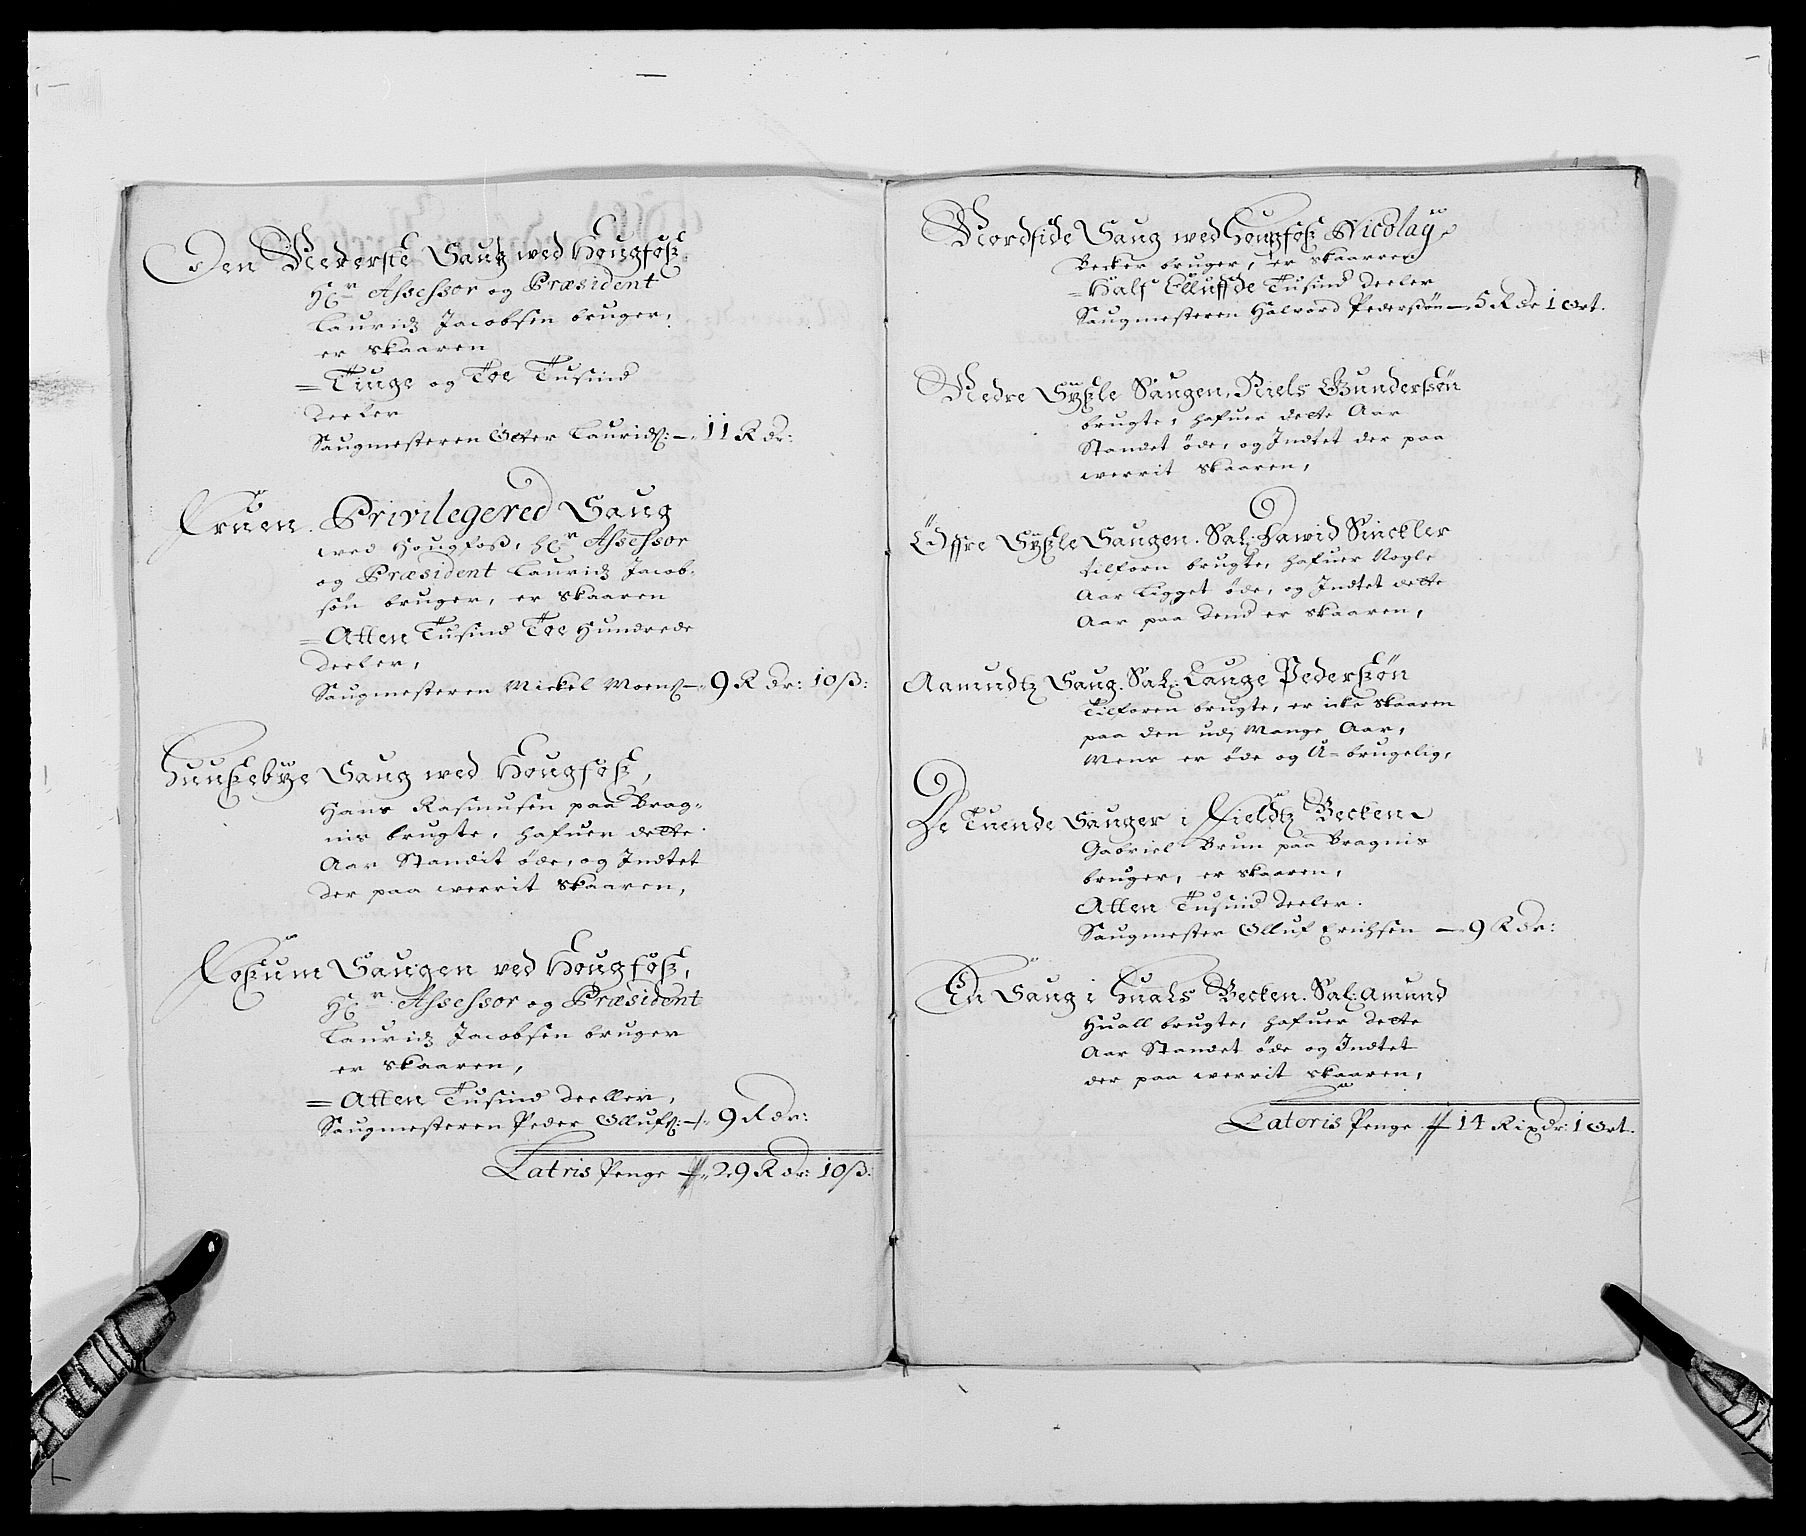 Den Nederste Saug wed Hougfoss.
Hr. Assessor og Præsident
Lauridz Jacobsen bruger,
er skaaren
= Tiuge og Toe Tusind
deeler
Saugmesteren Otter Lauridß: —. 11 Rdr:
Fruen. Privilegered Saug
wed Hougfoss, Hr. Assessor
og Præsident Lauridz Jacob-
søn bruger, er skaaren
= Atten Tusind Toe Hundrede
deeler,
Saugmesteren Mickel Moenß —. 9 Rdr: 10 ß:
Huusebye Saug wed Hougfoss,
Hans Rasmusen paa Brag-
nis brugte, hafuer dette
Aar Standit øde, og Indtet
der paa werrit skaaren,
Fossum Saugen ved Hougfoss,
Hr. Assessor og Præsident
Lauridz Jacobsen bruger
er skaaren,
= Atten Tusind deeller,
Saugmesteren Peder Ollufß: —. 9 Rdr:
Latris Penge —. 29 Rdr: 10 ß:
Nordside Saug wed Hougfoss Nicolay
Becker bruger, er skaaren
= Half Elluffde Tusind deeler
Saugmesteren Halvord Pedersøn —. 5 Rdr 1 Ort.
Nedre Sysle Saugen, Niels Gundersøn
brugte, hafuer dette Aar
Standet øde, og Indtet der paa
werrit skaaren,
Øffre Sysle Saugen. Sal: Dawid Sinckler
tilforn brugte, hafuer Nogle
Aar Ligget øde, og Indtet dette
Aar paa dend er skaaren,
Aamudtz Saug. Sal: Lauge Pedersøn
Tilforen brugte, er icke skaaren
paa den udj Mange Aar,
Mens er øde og U-brugelig,
De Tuende Sauger i Fieldtz Becken
Gabriel Brun paa Bragnis
bruger, er skaaren,
Atten Tusind deeler.
Saugmester Olluf Erichsen —. 9 Rdr:
En Saug i Huals Becken. Sal: Amund
Huall brugte, hafuer dette
Aar Standet øde og Indtet
der paa werrit skaaren,
Lateris Penge — 14 Rixdr: 1 Ort.